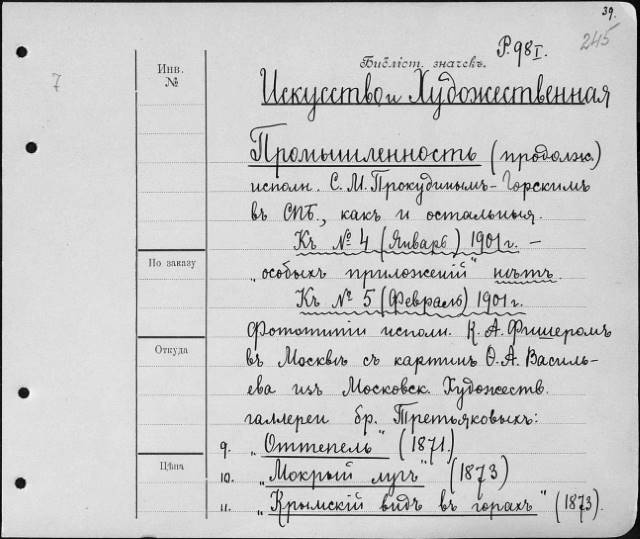 39.
245
P.98 I.
7
Инв.
№
Библіот. значекъ.
Искусство и Художественная
Промышленность (продолж.)
исполн. С. М. Прокудинымъ-Горскимъ
въ СПБ., какъ и остальныя.
Къ № 4 (Январь) 1901 г. –
По заказу
„особыхъ приложеній" нѣтъ.
Къ № 5 (Февраль) 1901 г.
Фототипіи исполн. К. А. Фишеромъ
Откуда
въ Москвѣ съ картинъ Ѳ. А. Василь-
ева изъ Московск. Художеств.
галлереи бр. Третьяковыхъ:
9. „Оттепель" (1871.)
Цѣна
10. „Мокрый лугъ" (1873)
11. „Крымскій видъ въ горахъ" (1873).